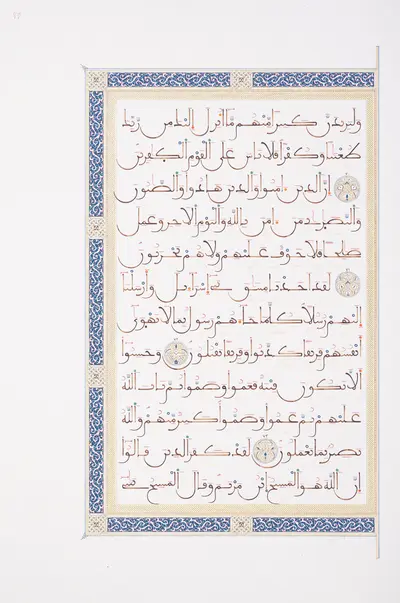 17
وليزيدن كثيرا منهم ما أنزل إليك من ربك
طغينا وكفرا فلا تاس على القوم الكفرين
إن الذين ءامنوا والذين هادوا والصبون
والنصرى من ءامن بالله واليوم الاخر وعمل
صلحا فلا خوف عليهم ولا هم يحزنون
لقد اخذنا ميثق بني إسراءيل وأرسلنا
إليهم رسلا كلما جاءهم رسول بما لا تهوى
أنفسهم فريقا كذبوا وفريقا يقتلون وحسبوا
ألا تكون فتنة فعموا وصموا ثم تاب الله
عليهم ثم عموا وصموا كثير منهم والله
بصير بما يعملون لقد كفر الذين قالوا
إن الله هو المسيح ابن مريم وقال المسيح يبني